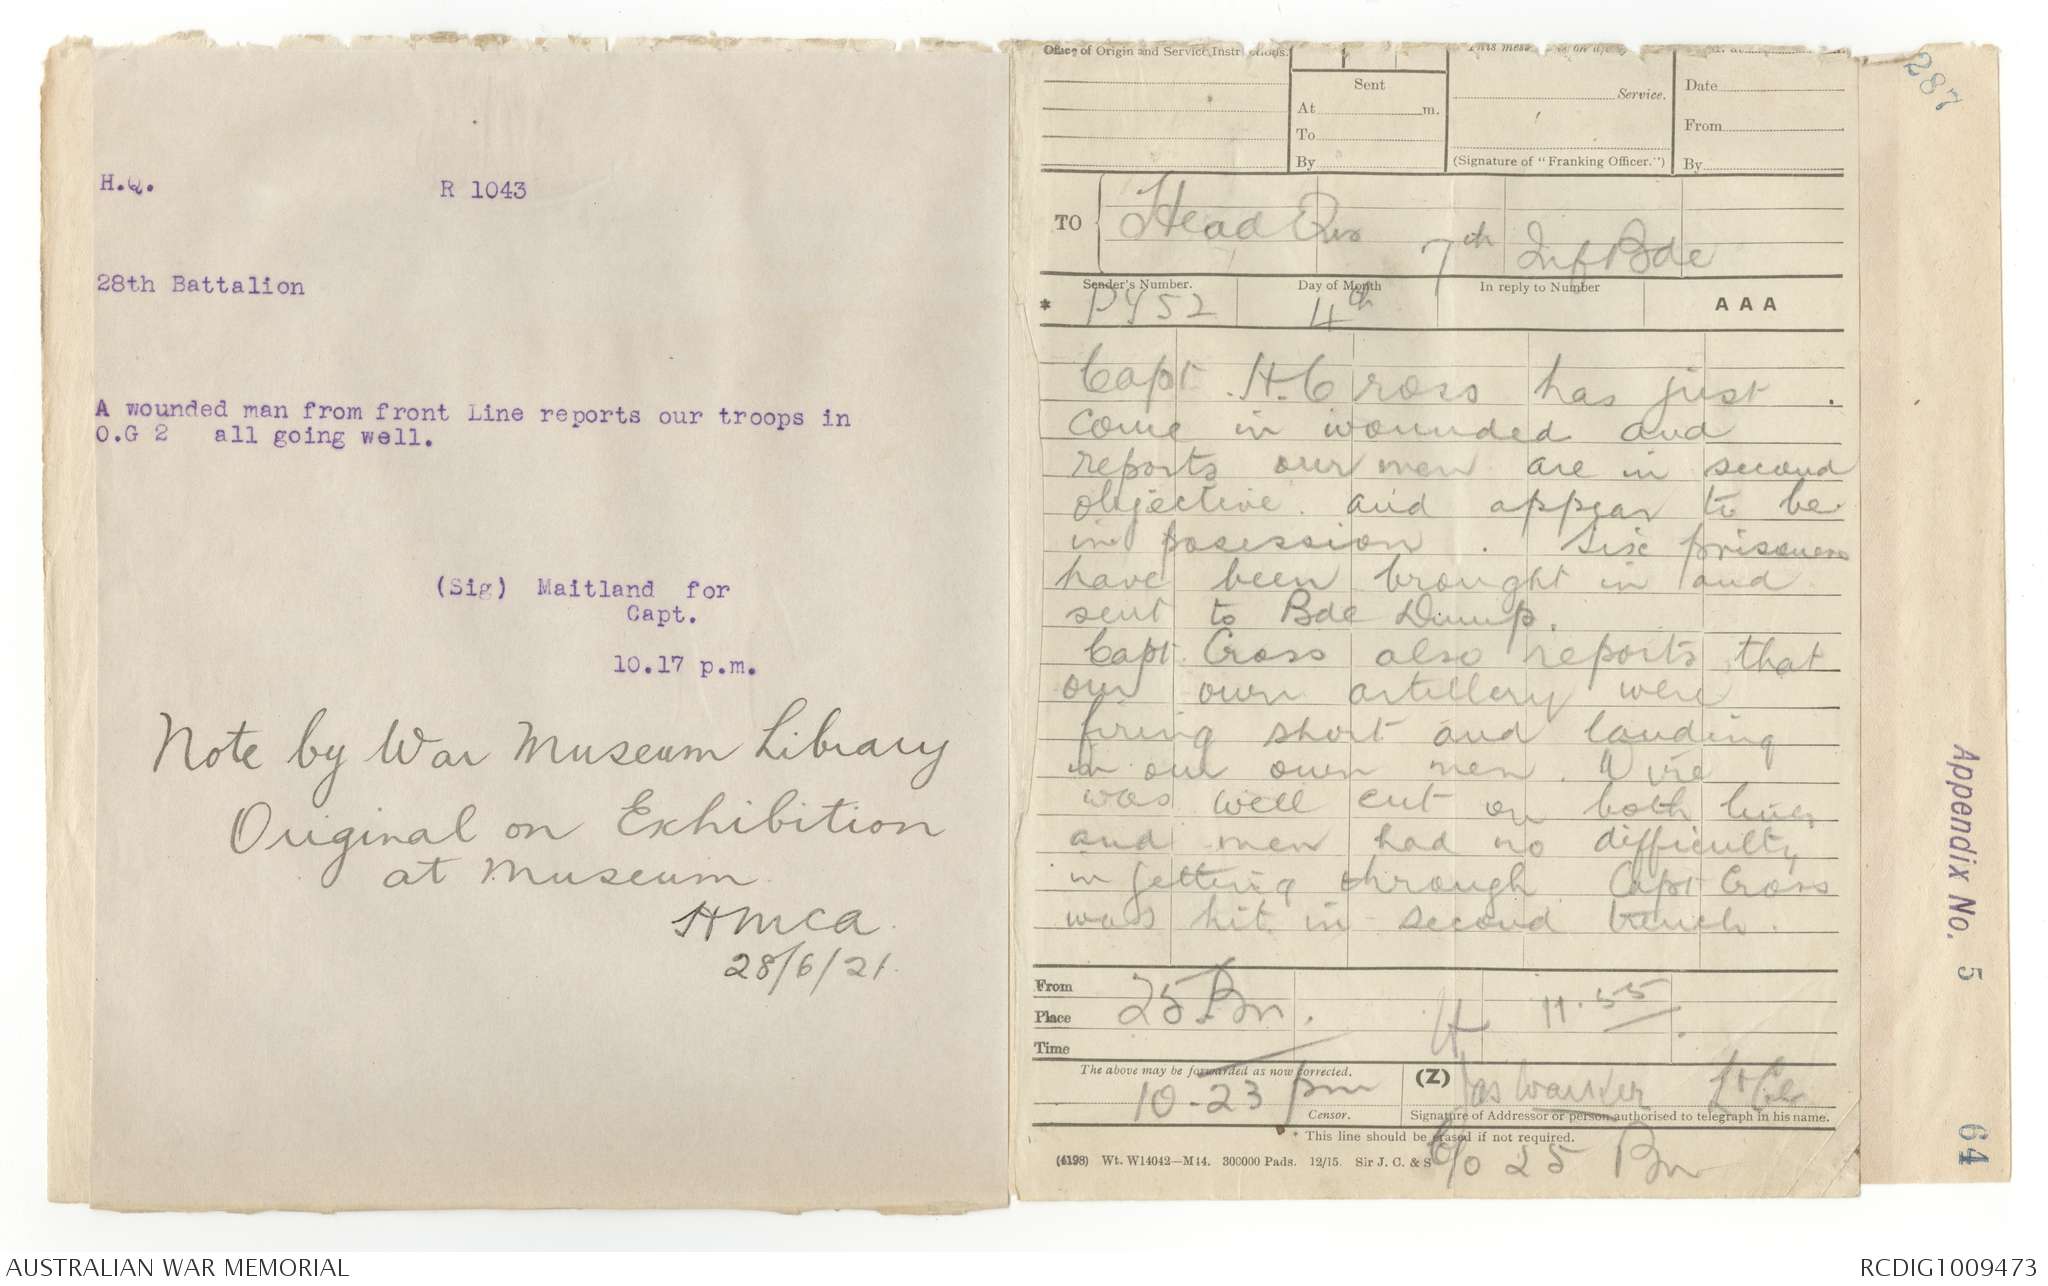 H.Q. R 1043
28th Battalion
A wounded man from front Line reports our troops in
O.G 2 all going well.
(Sig) Maitland for
Capt.
10.17 p.m.
Note by War Museum Library
Original on Exhibition
at Museum
HMCA.
28/6/21.
Office of Origin and Service Instructions.
Sent
At m.
To
By
This mess on a/c
Service.
(Signature of "Franking Officer.")
Date
From
By
287
TO Head Qrs 7th Inf Bde
Sender's Number. Day of Month In reply to Number AAA
* PY52 4th
Capt. H. Cross has just.
come in wounded and
reports our men are in second
objective. and appear to be
in posession. Six prisoners
have been brought in and
sent to Bde Dump.
Capt. Cross also reports that
our own artillery were
firing short and landing
in our own men. Wire
was well cut on both lines
and men had no difficulty
in getting through Capt Cross
was hit in second trench.
From
Place 25 Bn. 11.55
Time
The above may be forwarded as now corrected. (Z) Jas Walker Lt Col
10-23 pm Censor. Signature of Addressor or person authorised to telegraph in his name.
* This line should be erased if not required.
C/o 25 Bn
(4198) Wt. W14042—M14. 300000 Pads. 12/15. Sir J. C. & S
Appendix No. 5
64
AUSTRALIAN WAR MEMORIAL RCDIG1009473